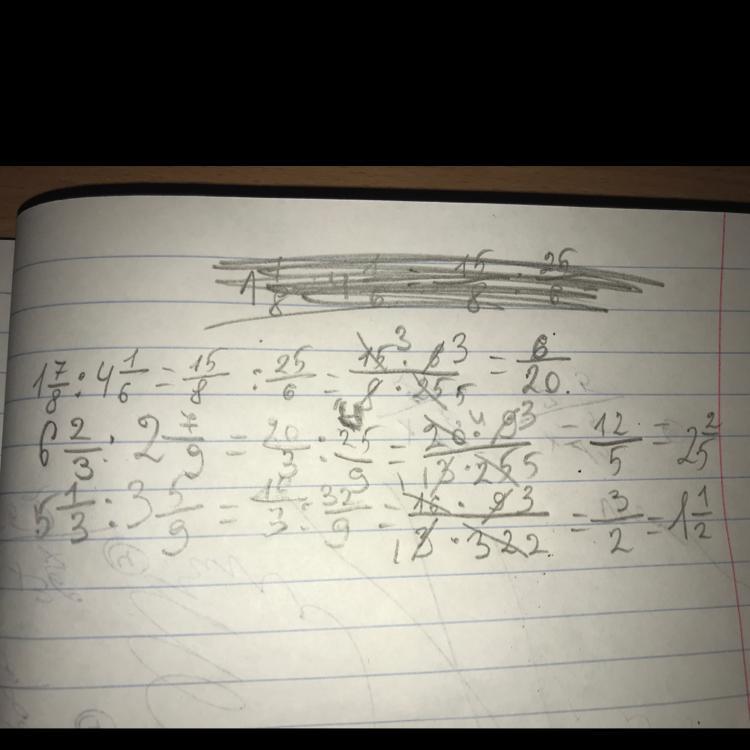 1 7/8 : 4 1/6 = 15/8 : 25/6 = 15 3 · 6 3 / 8 · 25 5 = 6/20.
6 2/3 : 2 7/9 = 20/3 : 25/9 = 20 4 · 9 3 / 1 3 · 25 5 = 12/5 = 2 2/5
5 1/3 : 3 5/9 = 16/3 : 32/9 = 16 · 9 3 / 1 3 · 32 2 = 3/2 = 1 1/2